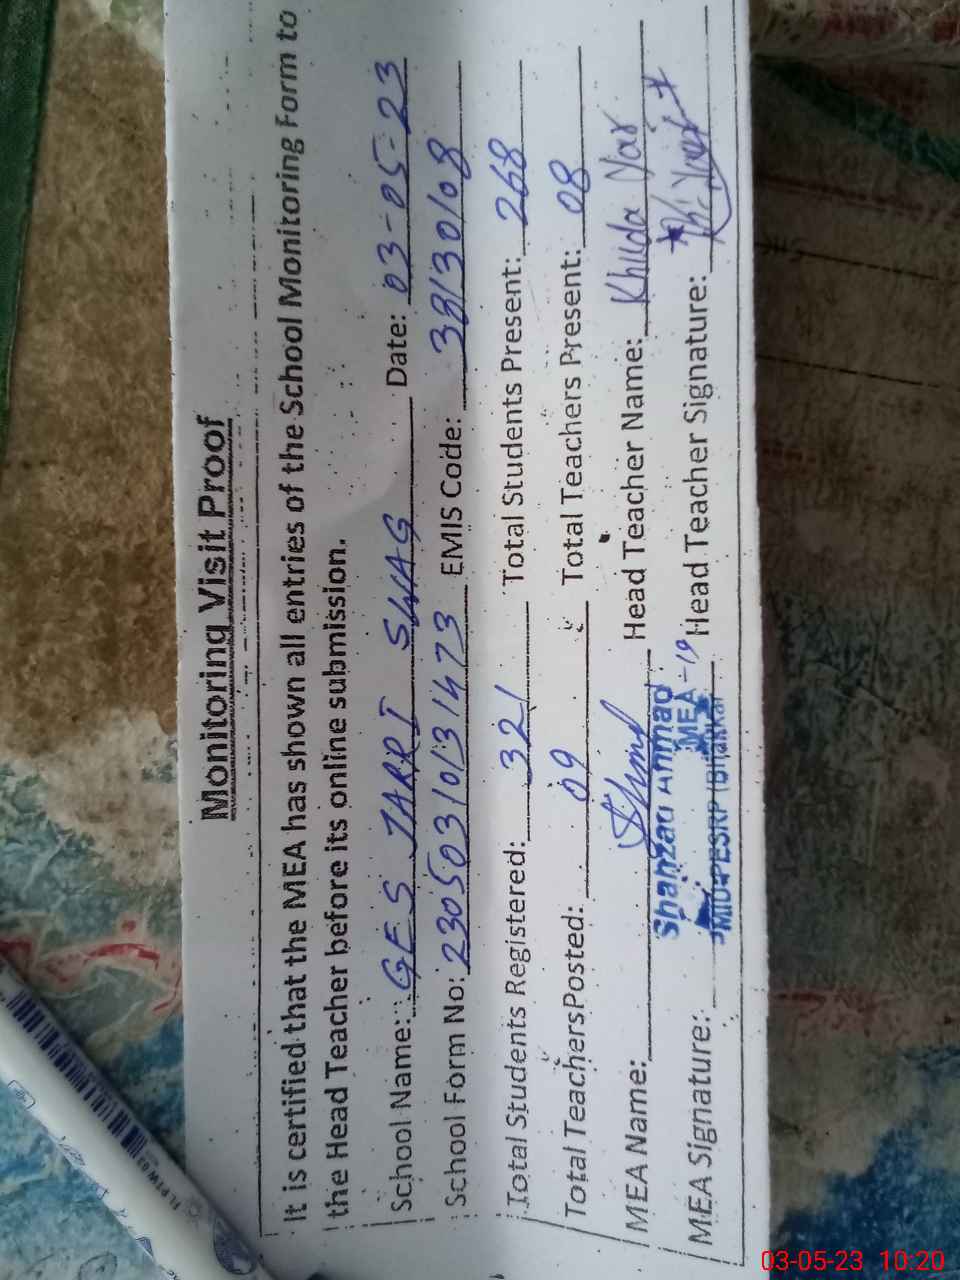 Monitoring Visit Proof
It is certified that the MEA has shown all entries of the School Monitoring Form to
the Head Teacher before its online submission.
School Name: GES JARRI SWAG Date: 03-05-23
School Form No: 230503101314 73 EMIS Code: 38130108
Total Students Registered: 321 Total Students Present: 268
Total TeachersPosted: 09 Total Teachers Present: 08
MEA Name: Head Teacher Name: Khuda Yar
Shahzad Ahmad
MEA-19
MEA Signature: MIU-PESRP (Bhakkar Head Teacher Signature:
03-05-23 10:20